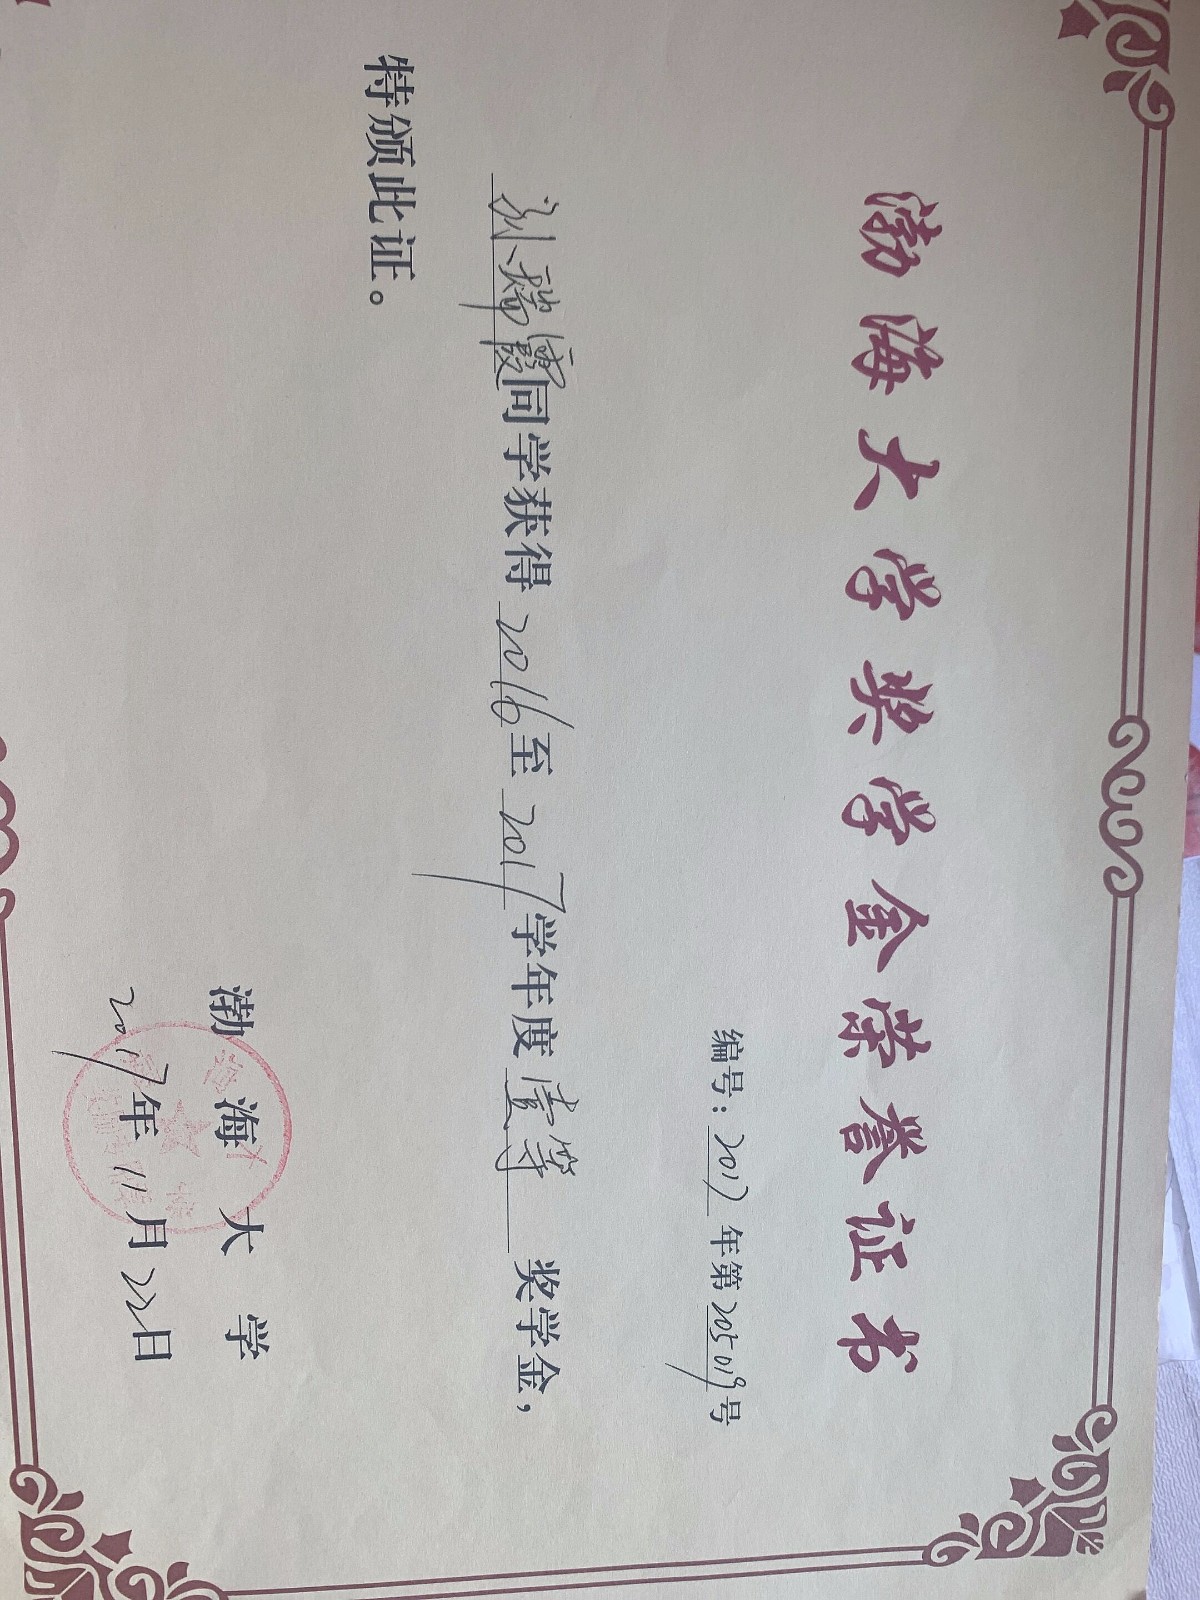 渤海大学奖学金荣誉证书
编号：2017年第205019号
同学获得2016至2017学年度壹等奖学金，
特颁此证。
渤海大学
2017年11月22日